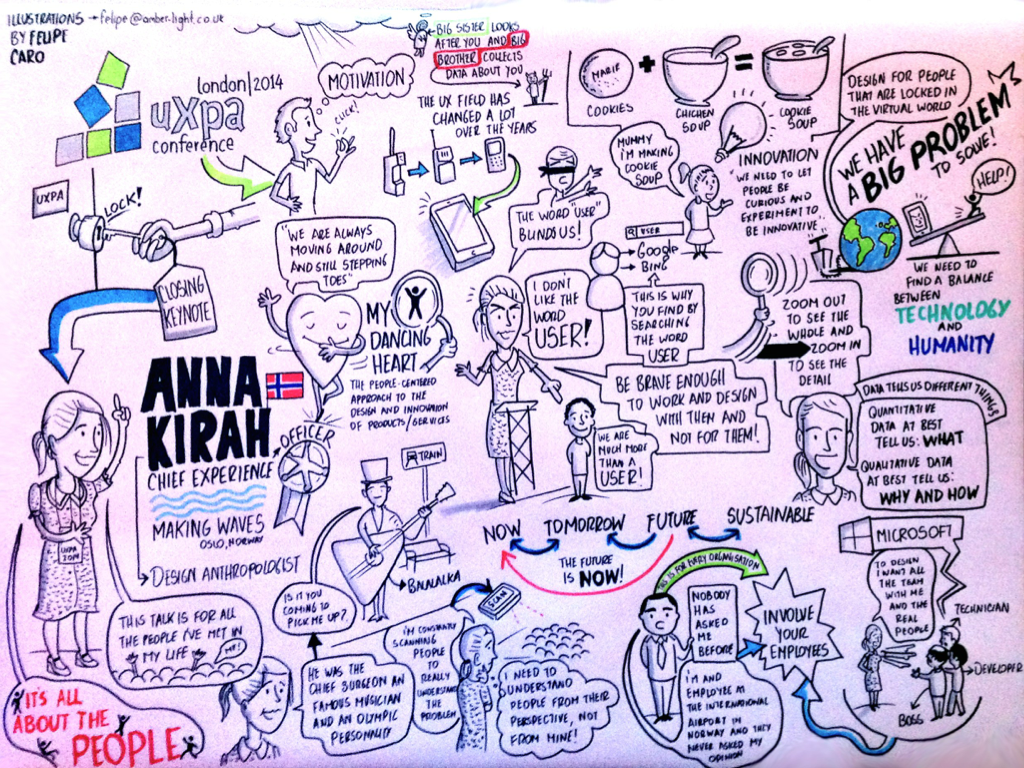 ILLUSTRATIONS → felipe@amber-light.co.uk
BY FELIPE
CARO
london|2014
uxpa
conference
UXPA
LOCK!
CLOSING
KEYNOTE
MOTIVATION
CLICK!
BIG SISTER LOOKS
AFTER YOU AND BIG
BROTHER COLLECTS
DATA ABOUT YOU
THE UX FIELD HAS
CHANGED A LOT
OVER THE YEARS
MARIE
COOKIES
+
CHICKEN
SOUP
=
COOKIE
SOUP
MUMMY
I'M MAKING
COOKIE
SOUP
INNOVATION
WE NEED TO LET
PEOPLE BE
CURIOUS AND
EXPERIMENT TO
BE INNOVATIVE
DESIGN FOR PEOPLE
THAT ARE LOCKED IN
THE VIRTUAL WORLD
WE HAVE
A BIG PROBLEM
TO SOLVE!
HELP!
WE NEED TO
FIND A BALANCE
BETWEEN
TECHNOLOGY
AND
HUMANITY
"WE ARE ALWAYS
MOVING AROUND
AND STILL STEPPING
TOES"
MY
DANCING
HEART
THE PEOPLE-CENTERED
APPROACH TO THE
DESIGN AND INNOVATION
OF PRODUCTS/SERVICES
THE WORD "USER"
BLINDS US!
I DON'T
LIKE THE
WORD
USER!
USER
Google
BING
THIS IS WHY
YOU FIND BY
SEARCHING
THE WORD
USER
ZOOM OUT
TO SEE THE
WHOLE AND
ZOOM IN
TO SEE THE
DETAIL
BE BRAVE ENOUGH
TO WORK AND DESIGN
WITH THEN AND
NOT FOR THEM!
WE ARE
MUCH MORE
THAN A
USER!
DATA TELLS US DIFFERENT THINGS
QUANTITATIVE
DATA AT BEST
TELL US: WHAT
QUALITATIVE DATA
AT BEST TELL US:
WHY AND HOW
ANNA
KIRAH
CHIEF EXPERIENCE
OFFICER
MAKING WAVES
OSLO, NORWAY
DESIGN ANTHROPOLOGIST
UXPA
2014
THIS TALK IS FOR ALL
THE PEOPLE I'VE MET IN
MY LIFE
ME!
IT'S ALL
ABOUT THE
PEOPLE
TRAIN
BALALAIKA
IS IT YOU
COMING TO
PICK ME UP?
HE WAS THE
CHIEF SURGEON AN
FAMOUS MUSICIAN
AND AN OLYMPIC
PERSONALITY
I'M CONSTANTLY
SCANNING
PEOPLE
TO
REALLY
UNDERSTAND
THE PROBLEM
SCAN
I NEED TO
UNDERSTAND
PEOPLE FROM THEIR
PERSPECTIVE, NOT
FROM MINE!
NOW TOMORROW FUTURE SUSTAINABLE
THE FUTURE
IS NOW!
THIS IS FOR EVERY ORGANISATION
NOBODY
HAS
ASKED
ME
BEFORE
I'M AND
EMPLOYEE AT
THE INTERNATIONAL
AIRPORT IN
NORWAY AND THEY
NEVER ASKED MY
OPINION
INVOLVE
YOUR
EMPLOYEES
MICROSOFT
TO DESIGN
I WANT ALL
THE TEAM
WITH ME
AND THE
REAL
PEOPLE
TECHNICIAN
DEVELOPER
BOSS